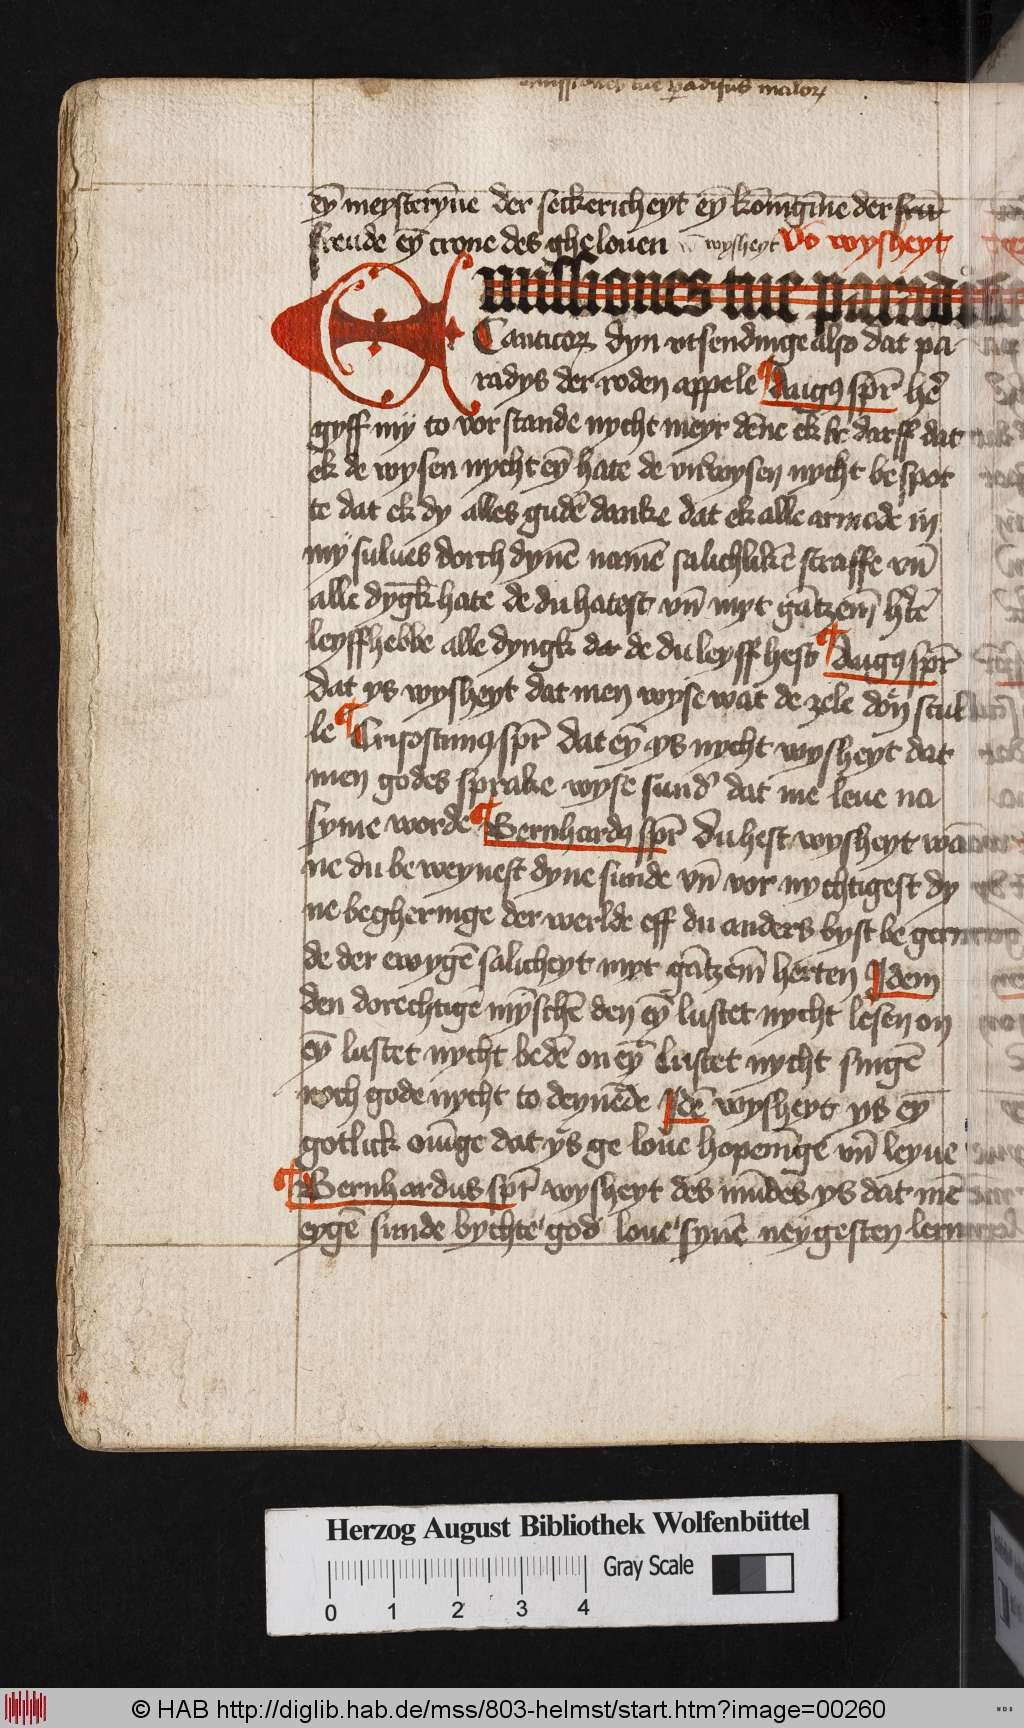 emissiones tue paradisus malor
ey̅ meystery̅ne der seckericheyt ey̅ ko̅nigi̅ne der fru̅
freude ey̅ crone des ghelouen wysheyt Vo̅ wysheyt
Emissiones tue paradisi
Canticor dyn vtsendinge also dat pa
radys der roden appele Augꝰ spr̅ he̅
gyff my to vorstande nycht meyr de̅ne ek be darff dat
ek de wysen nycht ey̅ hate de vnwysen nycht be spot
te dat ek dy alles gude̅ danke dat ek alle armede in
my sulues dorch dyne̅ name̅ salichlike̅ straffe vn̅
alle dy̅gk hate de du hatest vn̅ myt ga̅tzem̅ h̕te̅
leyff hebbe alle dyngk dar de du leyff hest Augꝰ spr̅
dat ys wysheyt dat men wyse wat de zele don scul
le Crisostimꝰ spr̅ dat ey̅ ys nycht wysheyt dat
men godes sprake wyse sund̕ dat me leue na
syme worde Bernhardꝰ spr̅ du hest wysheyt wa̅
ne du be weynest dyne sunde vn̅ vor nychtigest dy
ne begheringe der werlde eff du anders byst be geren
de der ewyge̅ salicheyt myt ga̅tzem̅ herten Idem
den dorechtige̅ my̅sche̅ den ey̅ lustet nycht lesen on
ey̅ lustet nycht bede̅ on ey̅ lustet nycht singe̅
noch gode nycht to deyne̅de Ide̅ wysheyt ys ey̅
gotlick oui̅ge dat ys ge loue hopeni̅ge vn̅ leyue
Bernhardus spr̅ wysheyt des mu̅des ys dat me̅
eyge̅ sunde bychte god loue syne̅ neygesten lern
Herzog August Bibliothek Wolfenbüttel
Gray Scale
0 1 2 3 4
© HAB http://diglib.hab.de/mss/803-helmst/start.htm?image=00260